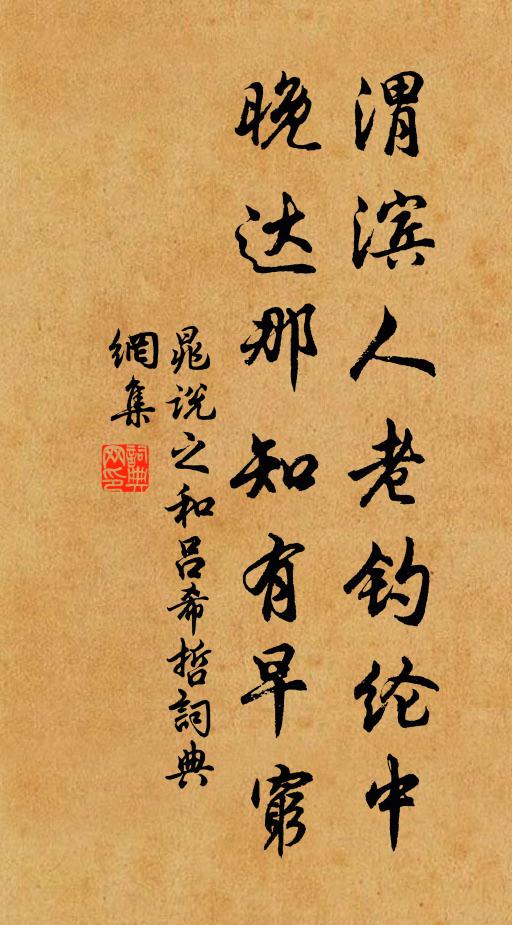 渭滨人老钓纶中
晚达那知有早窮
晁说之和吕希哲詞典
網集
詞典
网印